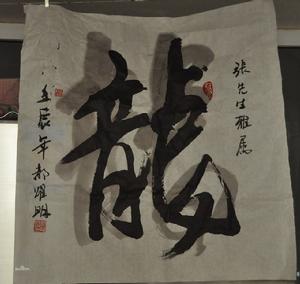 張先生雅属
龍
壬辰年郝耀明